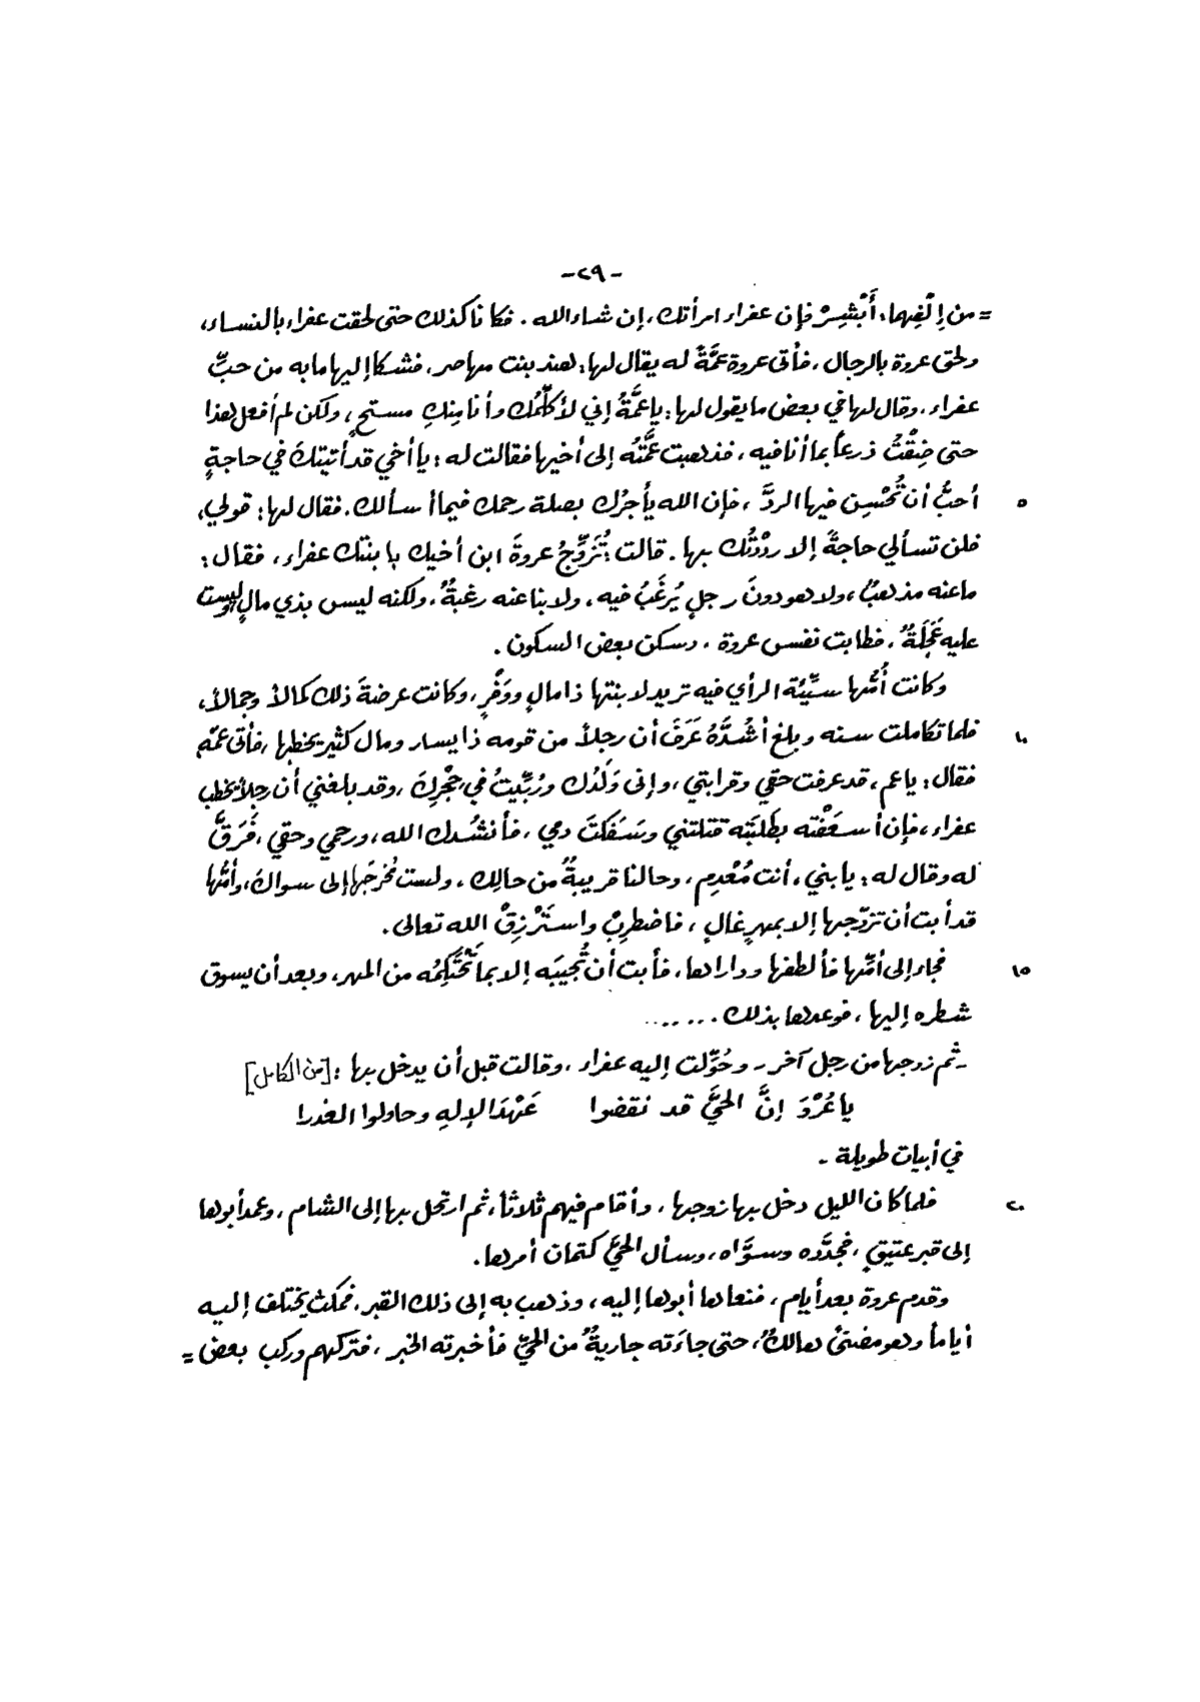 -٢٩-
= من إِلْفِهما: أَبْشِرْ فإن عفراء امرأتك، إن شاء الله. فكانا كذلك حتى لحقت عفراء بالنساء،
ولحق عروة بالرجال، فأتى عروة عمَّةً له يقال لها: هند بنت مهاصر، فشكا إليها ما به من حبِّ
عفراء، وقال لها في بعض ما يقول لها: يا عمَّةُ إني لأكلِّمُك وأنا مِنكِ مستحٍ، ولكن لم أفعل هذا
حتى ضِقْتُ ذرعاً بما أنا فيه، فذهبت عمَّتُه إلى أخيها فقالت له: يا أخي قد أتيتكَ في حاجةٍ
٥ أحبُّ أن تُحْسِن فيها الردَّ، فإن الله يأجرُك بصلة رحمك فيما أسألك. فقال لها: قولي،
فلن تسألي حاجةً إلا رددْتُك بها. قالت: تُزَوِّجُ عروةَ ابن أخيك بابنتك عفراء، فقال:
ما عنه مذهبٌ، ولا هو دونَ رجلٍ يُرغَبُ فيه، ولا بنا عنه رغبةٌ، ولكنه ليس بذي مالٍ وليست
عليه عَجَلَةٌ، فطابت نفس عروة، وسكن بعض السكون.
وكانت أُمُّها سيِّئة الرأي فيه تريد لابنتها ذا مالٍ ووَفْرٍ، وكانت عرضةَ ذلك كمالاً وجمالاً،
١٠ فلما تكاملت سنه وبلغ أشُدَّهُ عَرَفَ أن رجلاً من قومه ذا يسار ومال كثير يخطبها، فأتى عمّه
فقال: يا عم، قد عرفت حقي وقرابتي، وإني وَلَدُك ورُبِّيتُ في حِجْرِكَ، وقد بلغني أن رجلاً يخطب
عفراء، فإن أسعَفْته بطَلبَتِه قتلتني وسَفَكتَ دمي، فأنشُدك الله، ورحمي وحقي، فَرَقَّ
له وقال له: يا بني، أنت مُعْدِم، وحالنا قريبةٌ من حالِك، ولست مُخرجَها إلى سواكَ، وأمُّها
قد أبت أن تزوّجها إلا بمهرٍ غالٍ، فاضطرِبْ واستَرْزِقْ الله تعالى.
١٥ فجاء إلى أمِّها فألطفها وداراها، فأبت أن تُجيبَه إلا بما تَحْتَكِمُه من المهر، وبعد أن يسوق
شطره إليها، فوعدها بذلك.......
- ثم زوجها من رجل آخر - وحُوِّلت إليه عفراء، وقالت قبل أن يدخل بها: [من الكامل]
يا عُرْوَ إنَّ الحيَّ قد نقضوا عَهْدَ الإلهِ وحاولوا الغدرا
في أبيات طويلة -
٢٠ فلما كان الليل دخل بها زوجها، وأقام فيهم ثلاثاً، ثم ارتحل بها إلى الشام، وعمد أبوها
إلى قبر عتيقٍ، فجدَّده وسوَّاه، وسأل الحيَّ كتمان أمرها.
وقدم عروة بعد أيام، فنعاها أبوها إليه، وذهب به إلى ذلك القبر، فمكث يختلف إليه
أياماً وهو مضنىً هالكٌ، حتى جاءَته جاريةٌ من الحيِّ فأخبرته الخبر، فتركهم وركب بعض =